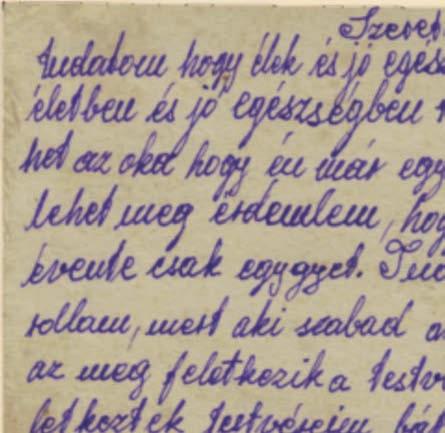 Szeret
tudatom hogy élek és jó egés
életben és jó egészségben
het az oka hogy én már egy
lehet meg érdemlem, hog
évente csak egygyet. Tud
rollam, mert aki szabad a
az meg feletkezik a testv
letkeztek testvéreim, bár